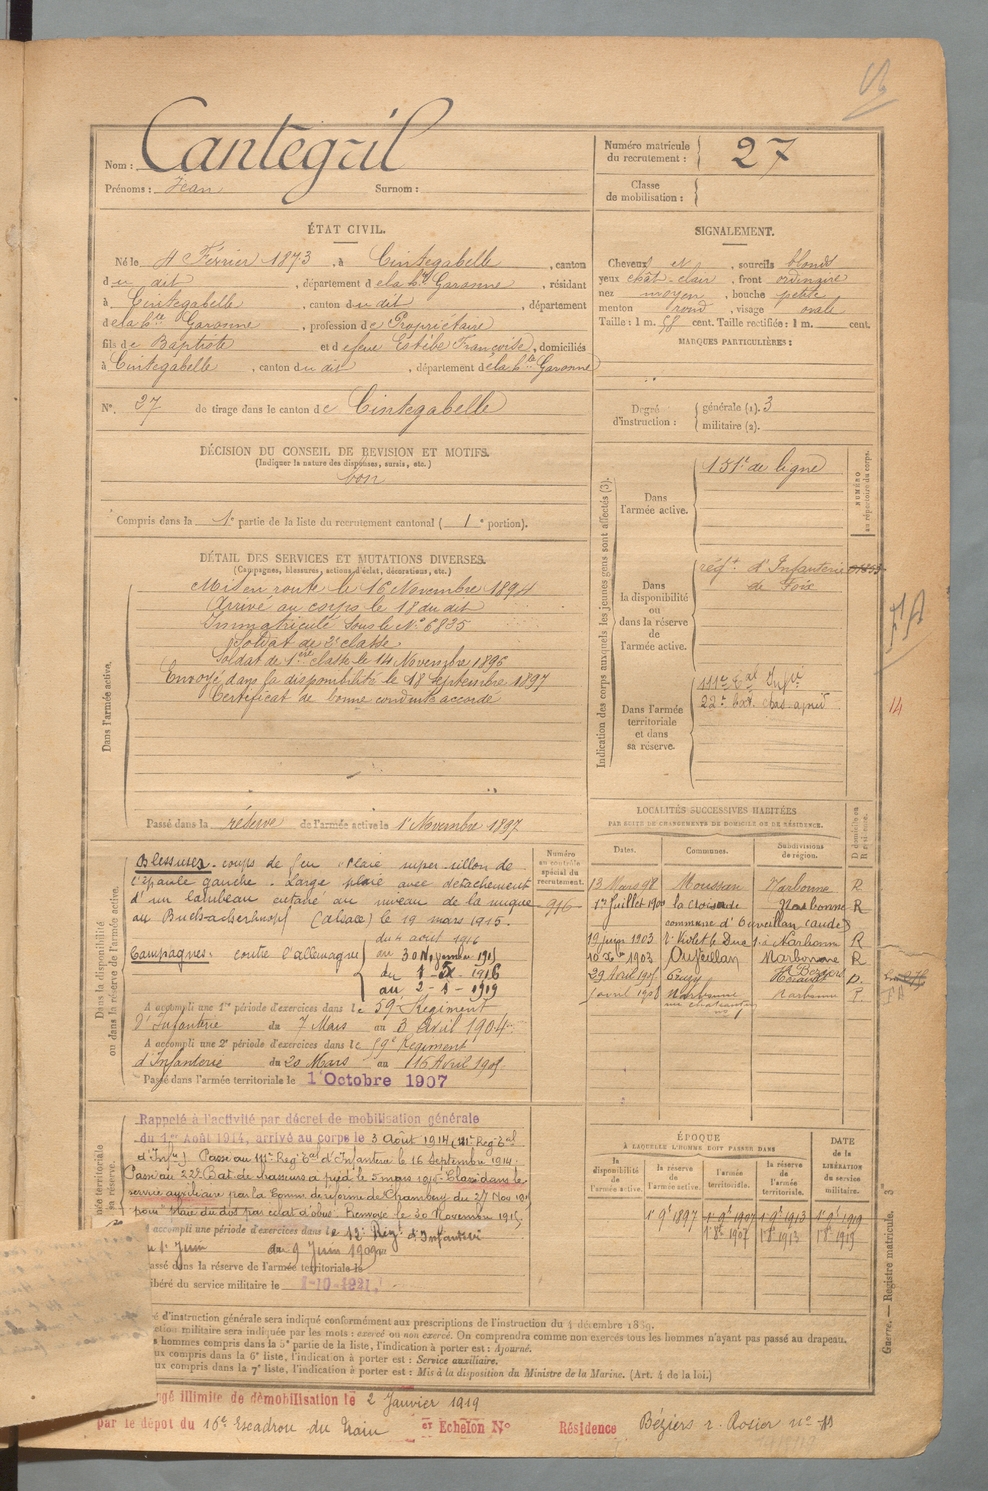 Nom : Cantegril
Prénoms : Jean Surnom :
Numéro matricule du recrutement : 27
Classe de mobilisation :
ÉTAT CIVIL.
Né le 4 Février 1873, à Cintegabelle, canton
du dit, département de la hte Garonne, résidant
à Cintegabelle, canton du dit, département
de la hte Garonne, profession de Propriétaire
fils de Baptiste et de feue Estèbe Françoise, domiciliés
à Cintegabelle, canton du dit, département de la hte Garonne
N°. 27 de tirage dans le canton de Cintegabelle
SIGNALEMENT.
Cheveux et, sourcils blonds
yeux chât-clair, front ordinaire
nez moyen, bouche petite
menton rond, visage ovale
Taille : 1 m. 58 cent. Taille rectifiée : 1 m. cent.
MARQUES PARTICULIÈRES :
Degré d'instruction : générale (1). 3
militaire (2).
DÉCISION DU CONSEIL DE REVISION ET MOTIFS.
(Indiquer la nature des dispenses, sursis, etc.)
bon
Compris dans la 1e partie de la liste du recrutement cantonal (1e portion).
DÉTAIL DES SERVICES ET MUTATIONS DIVERSES.
(Campagnes, blessures, actions d'éclat, décorations, etc.)
Dans l'armée active.
Mis en route le 16 Novembre 1894
Arrivé au corps le 18 du dit
Immatriculé sous le N° 6825
Soldat de 2e classe
Soldat de 1ère classe le 14 Novembre 1896
Envoyé dans la disponibilité le 18 Septembre 1897
Certificat de bonne conduite accordé
Passé dans la réserve de l'armée active le 1er Novembre 1897
Indication des corps auxquels les jeunes gens sont affectés (3).
NUMÉRO au répertoire du corps.
Dans l'armée active.
151e de ligne
Dans la disponibilité ou dans la réserve de l'armée active.
régt d'Infanterie
de Foix
Dans l'armée territoriale et dans sa réserve.
111e tal Infie
22e bat. chas à pied
FA
14
Dans la disponibilité ou dans la réserve de l'armée active.
Blessures. coups de feu. Plaie super. sillon de
l'épaule gauche. Large plaie avec detachement
d'un lambeau cutané au niveau de la nuque
au Buchacherkopf (Alsace) le 19 mars 1915.
Campagnes: contre l'allemagne
du 4 août 1914
au 30 Nov 1915
du 1-X-1916
au 2-1-1919
A accompli une 1re période d'exercices dans le 59e Régiment
d'Infanterie du 7 Mars au 3 Avril 1904
A accompli une 2e période d'exercices dans le 59e Régiment
d'Infanterie du 20 Mars au 15 Avril 1905
Passé dans l'armée territoriale le 1er Octobre 1907
Numéro au contrôle spécial du recrutement.
916
LOCALITÉS SUCCESSIVES HABITÉES
PAR SUITE DE CHANGEMENTS DE DOMICILE OU DE RÉSIDENCE.
Dates. Communes. Subdivisions de région. D domicile ou R résidence.
13 Mars 98 Moussan Narbonne R
1er Juillet 1900 la Croisade Narbonne R
commune d'Ouveillan (Aude)
19 juin 1903 Narbonne R
1903 Ouveillan Narbonne R
29 Avril 1905 Béziers D.
1 avril 1908 Narbonne Narbonne
Rappelé à l'activité par décret de mobilisation générale
du 1er Août 1914, arrivé au corps le 3 Août 1914 (111e Régt tal
d'Infie). Passé au 111e Régt tal d'Infanterie le 16 Septembre 1914.
Passé au 22e Bat. de chasseurs à pied le 5 mars 1915. Classé dans le
service auxiliaire par la Comm de réforme de Chambéry du 27 Nov 1915
pour plaie du dos par éclat d'obus. Renvoyé le 30 Novembre 1915.
accompli une période d'exercices dans le 12e Régt d'Infanterie
1er Juin au 9 Juin 1909
Passé dans la réserve de l'armée territoriale le
Libéré du service militaire le 1-10-1921
ÉPOQUE
À LAQUELLE L'HOMME DOIT PASSER DANS
la disponibilité de l'armée active. la réserve de l'armée active. l'armée territoriale. la réserve de l'armée territoriale. DATE de la LIBÉRATION du service militaire.
1er 9e 1897 1er 9e 1907 1er 9e 1913 1er 9e 1919
1er 8e 1907 1er 8e 1913 1er 8e 1919
Guerre. — Registre matricule. 3
é d'instruction générale sera indiqué conformément aux prescriptions de l'instruction du 4 décembre 1889.
ction militaire sera indiquée par les mots : exercé ou non exercé. On comprendra comme non exercés tous les hommes n'ayant pas passé au drapeau.
s hommes compris dans la 5e partie de la liste, l'indication à porter est : Ajourné.
ux compris dans la 6e liste, l'indication à porter est : Service auxiliaire.
ux compris dans la 7e liste, l'indication à porter est : Mis à la disposition du Ministre de la Marine. (Art. 4 de la loi.)
ngé illimité de démobilisation le 2 Janvier 1919
par le dépôt du 16e Escadron du Train et Echelon N° Résidence Béziers r. Rosier no